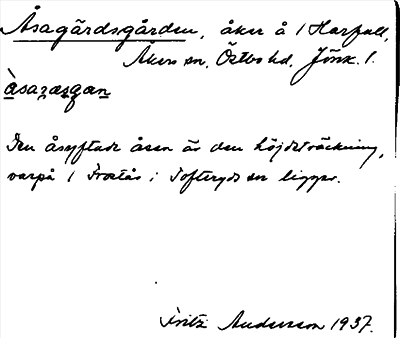 Åsagärdsgården, åker å 1 Harfall,
Åkers sn, Östbo hd, Jönk. l.
àsaʒæsgan
Den åsyftade åsen är den höjdsträckning,
varpå 1 Frostås i Tofteryds sn ligger.
Fritz Anderson 1937.